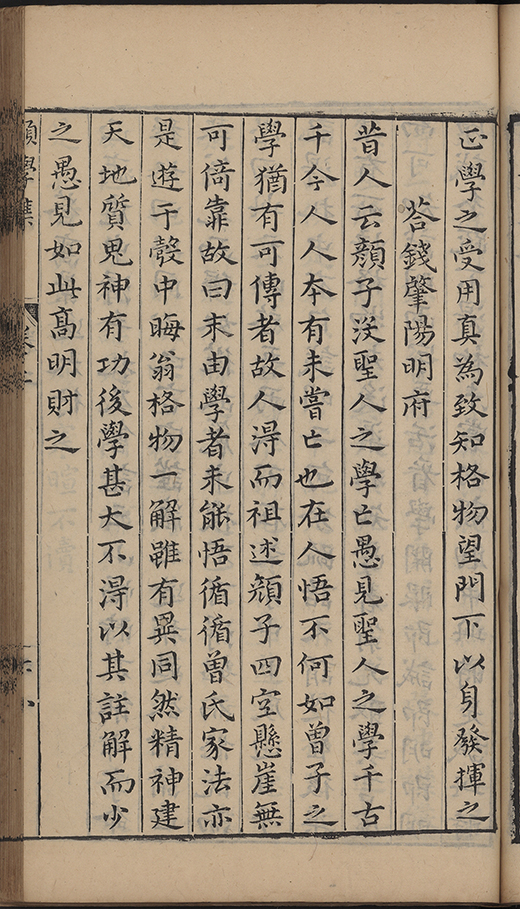 正學之受用真為致知格物望門下以身發揮之
荅錢肇陽明府
昔人云顔子沒聖人之學亡愚見聖人之學千古
千今人人本有未嘗亡也在人悟不何如曾子之
學猶有可傳者故人淂而祖述顔子四空懸崖無
可倚靠故曰末由學者未能悟循循曾氏家法亦
是遊于彀中晦翁格物一解雖有異同然精神建
天地質鬼神有功後學甚大不淂以其註解而少
之愚見如此髙明財之
願學集
卷二